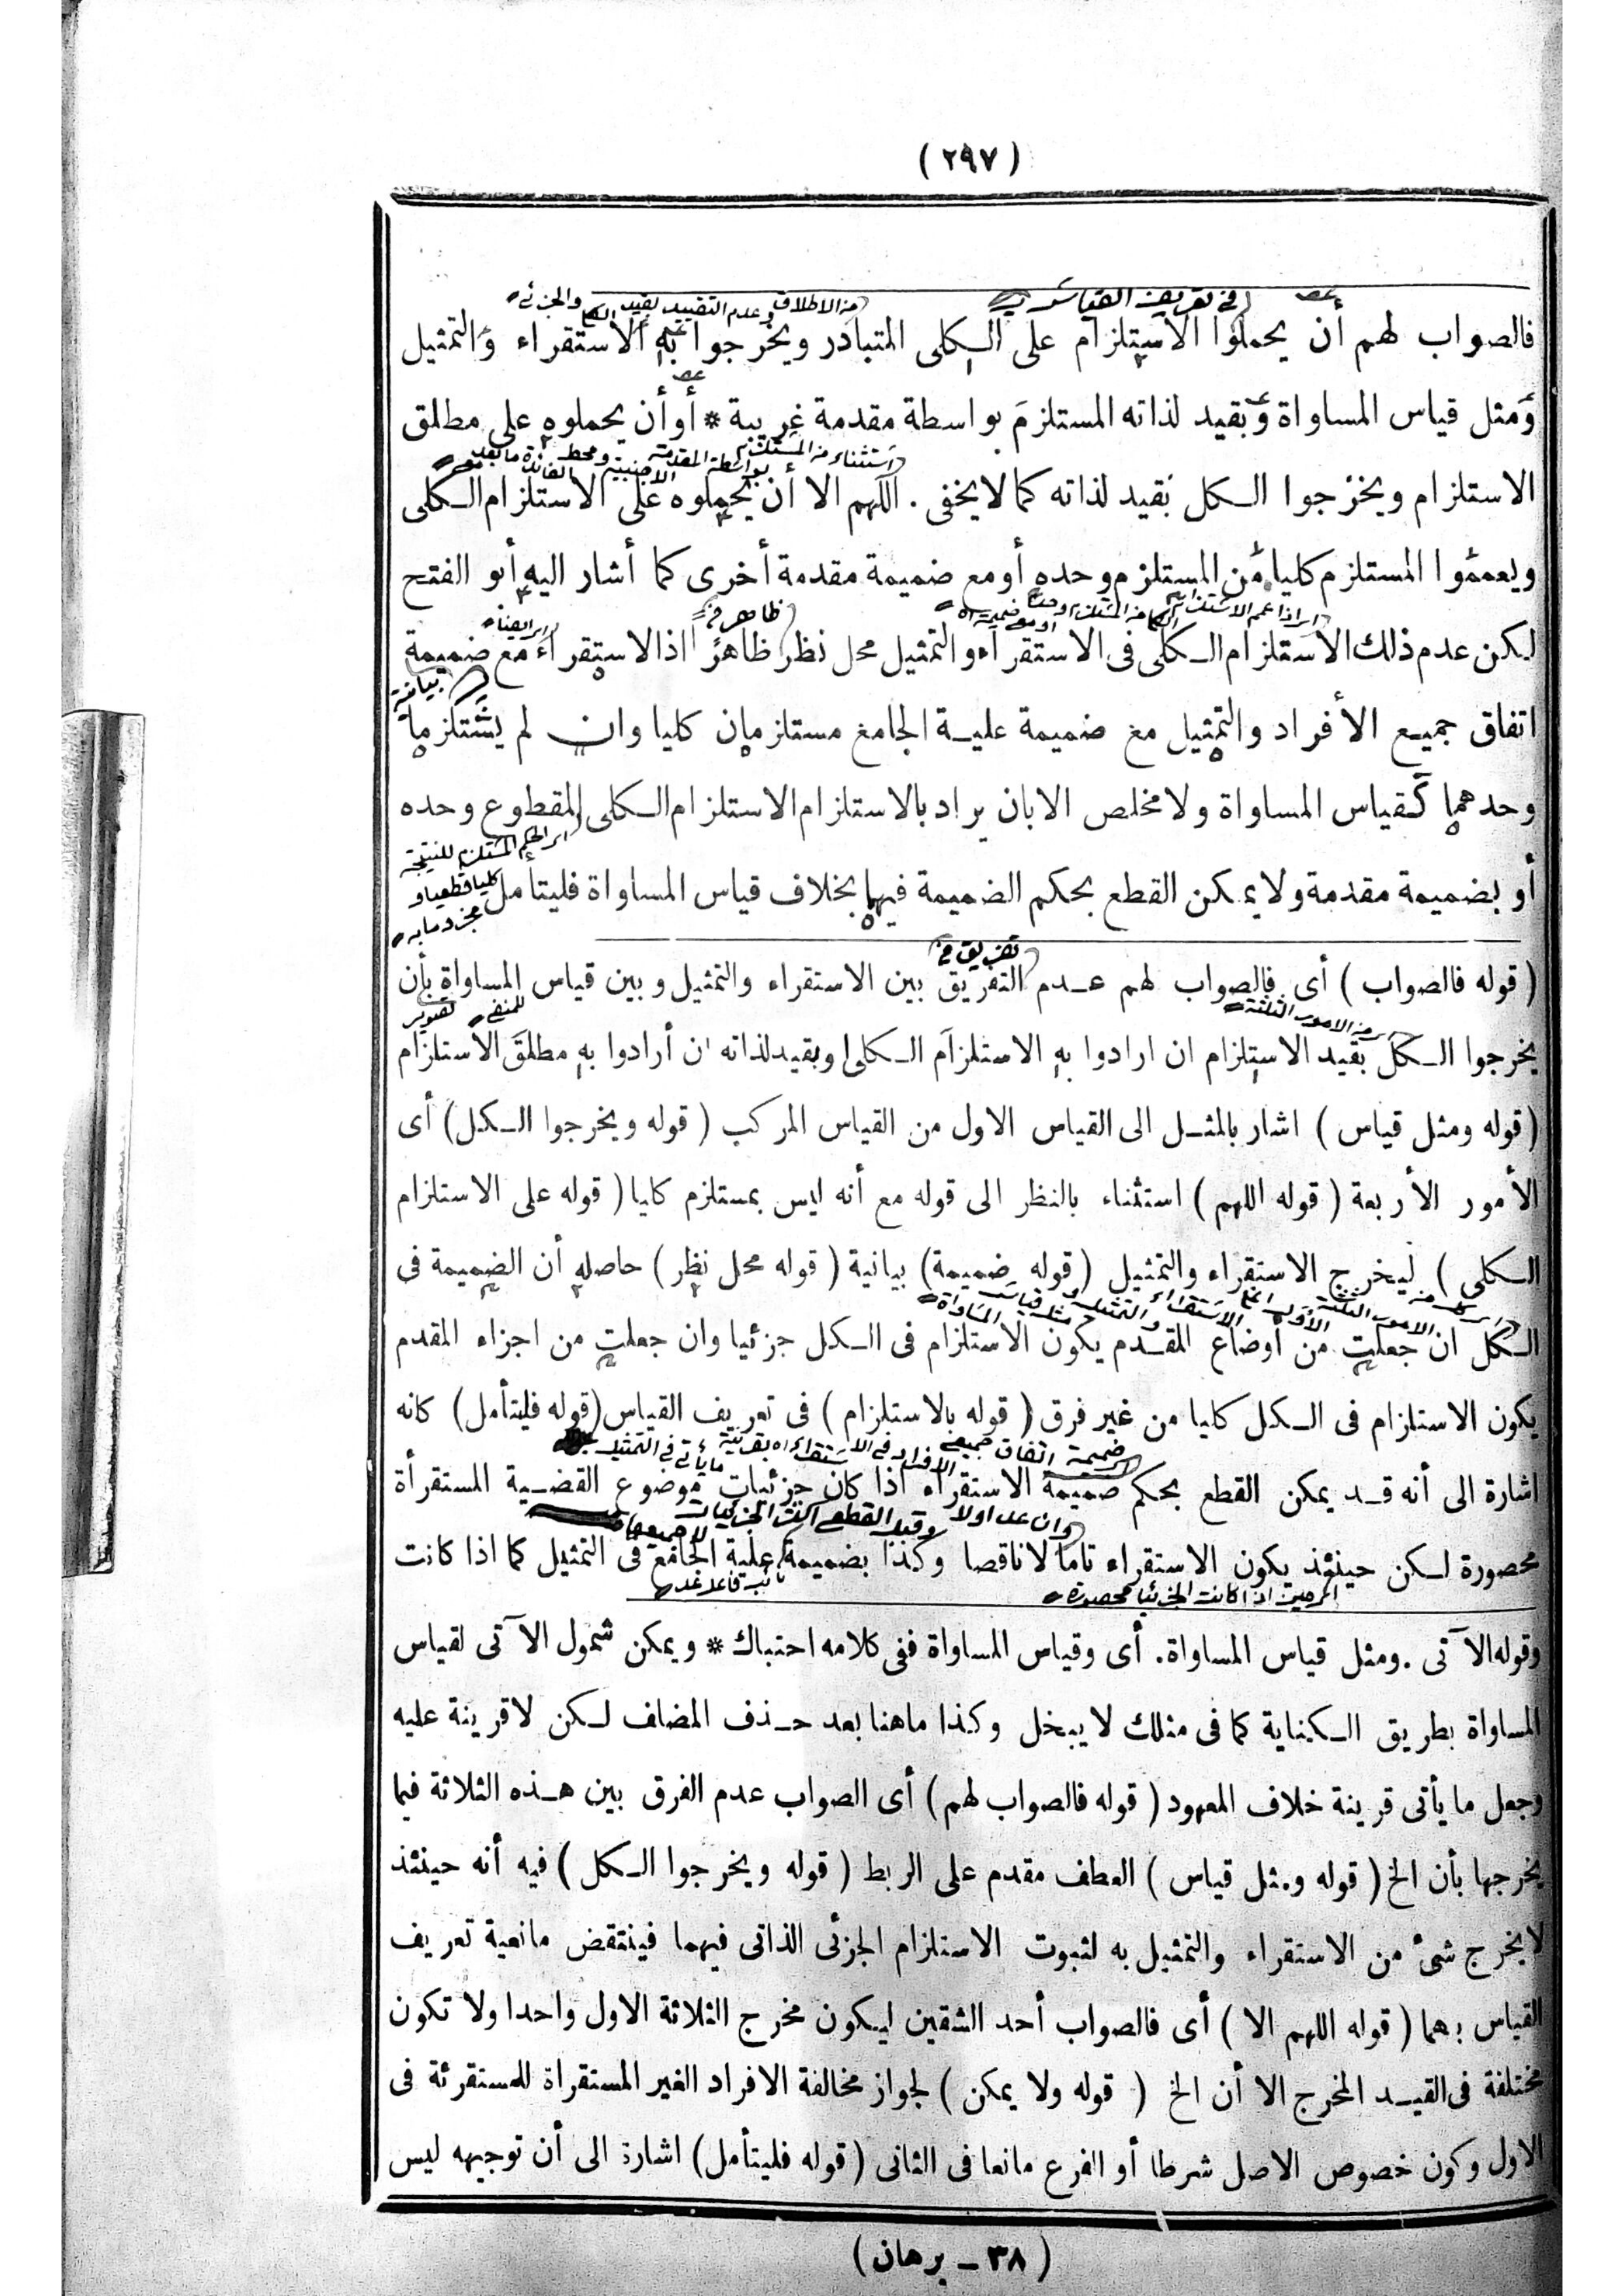 ( ٢٩٧ )
فى تعريف القياس
من الاطلاق وعدم التقييد بقيد
فالصواب لهم أن يحملوا الاستلزام على الكلى المتبادر ويخرجوا به الاستقراء والتمثيل
ومثل قياس المساواة وبقيد لذاته المستلزم بواسطة مقدمة غريبة * أو أن يحملوه على مطلق
الاستلزام ويخرجوا الكل بقيد لذاته كما لا يخفى . اللهم الا أن يحملوه على الاستلزام الكلى
ويعمموا المستلزم كليا من المستلزم وحده أو مع ضميمة مقدمة أخرى كما أشار اليه أبو الفتح
ظاهر
لكن عدم ذلك الاستلزام الكلى فى الاستقراء والتمثيل محل نظر ظاهرا اذ الاستقراء مع ضميمة
بيانية
اتفاق جميع الأفراد والتمثيل مع ضميمة علية الجامع مستلزمان كليا وان لم يستلزما
وحدهما كقياس المساواة ولا مخلص الا بان يراد بالاستلزام الاستلزام الكلى المقطوع وحده
أو بضميمة مقدمة ولا يمكن القطع بحكم الضميمة فيهما بخلاف قياس المساواة فليتأمل
تفريق
( قوله فالصواب ) أى فالصواب لهم عدم التفريق بين الاستقراء والتمثيل وبين قياس المساواة بأن
من الامور الثلثة
يخرجوا الكل بقيد الاستلزام ان ارادوا به الاستلزام الكلى وبقيد لذاته ان أرادوا به مطلق الاستلزام
( قوله ومثل قياس ) اشار بالمثل الى القياس الاول من القياس المركب ( قوله ويخرجوا الكل ) أى
الأمور الأربعة ( قوله اللهم ) استثناء بالنظر الى قوله مع أنه ليس بمستلزم كليا ( قوله على الاستلزام
الكلى ) ليخرج الاستقراء والتمثيل ( قوله ضميمة ) بيانية ( قوله محل نظر ) حاصله أن الضميمة فى
الكل ان جعلت من أوضاع المقدم يكون الاستلزام فى الكل جزئيا وان جعلت من اجزاء المقدم
يكون الاستلزام فى الكل كليا من غير فرق ( قوله بالاستلزام ) فى تعريف القياس ( قوله فليتأمل ) كانه
اشارة الى أنه قد يمكن القطع بحكم ضميمة الاستقراء اذا كان جزئيات موضوع القضية المستقرأة
محصورة لكن حينئذ يكون الاستقراء تاما لا ناقصا وكذا بضميمة علية الجامع فى التمثيل كما اذا كانت
وقوله الآتى . ومثل قياس المساواة . أى وقياس المساواة ففى كلامه احتباك * ويمكن شمول الآتى لقياس
المساواة بطريق الكناية كما فى مثلك لا يبخل وكذا ماهنا بعد حذف المضاف لكن لا قرينة عليه
وجعل ما يأتى قرينة خلاف المعهود ( قوله فالصواب لهم ) أى الصواب عدم الفرق بين هذه الثلاثة فيما
يخرجها بأن الخ ( قوله ومثل قياس ) العطف مقدم على الربط ( قوله ويخرجوا الكل ) فيه أنه حينئذ
لا يخرج شئ من الاستقراء والتمثيل به لثبوت الاستلزام الجزئى الذاتى فيهما فينتقض مانعية تعريف
القياس بهما ( قوله اللهم الا ) أى فالصواب أحد الشقين ليكون مخرج الثلاثة الاول واحدا ولا تكون
مختلفة فى القيد المخرج الا أن الخ ( قوله ولا يمكن ) لجواز مخالفة الافراد الغير المستقراة للمستقرئة فى
الاول وكون خصوص الاصل شرطا أو الفرع مانعا فى الثانى ( قوله فليتأمل ) اشارة الى أن توجيهه ليس
( ٣٨ – برهان )